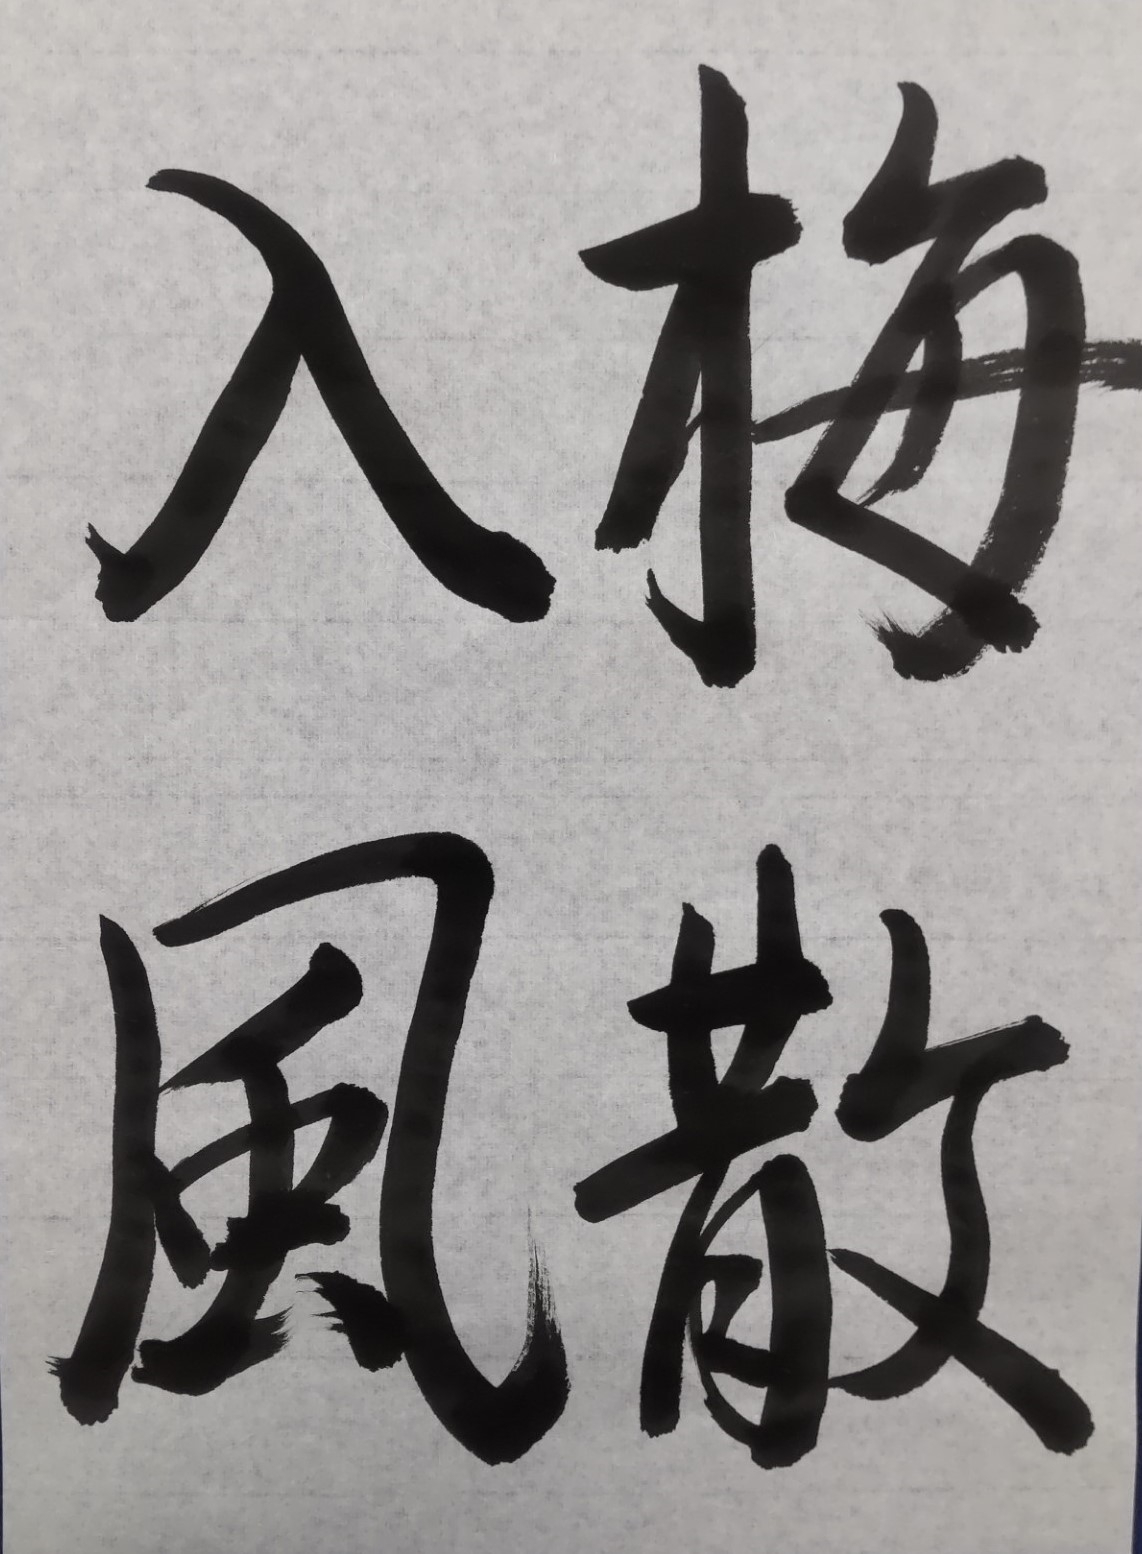 梅散
入風